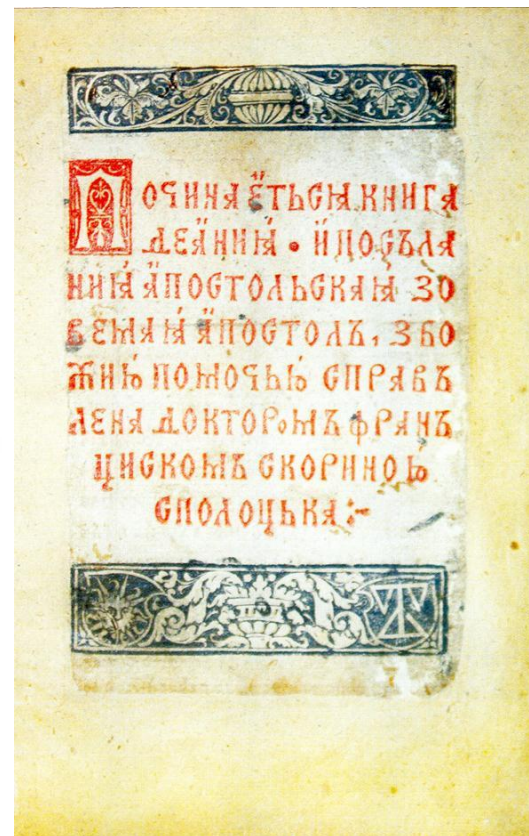 Почина е҆тьсѧ книга
деа҆ниꙗ҆ • и҆ посъла
ниꙗ҆ а҆постольскаꙗ҆ зо
вемаꙗ҆ а҆постолъ, з бо
жиѥю помочью справъ
лена докторомъ Фран
циском скориною
сполоцька :~